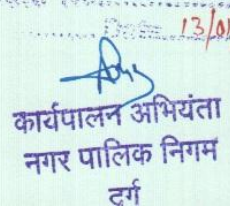 13/01
कार्यपालन अभियंता
नगर पालिक निगम
दुर्ग